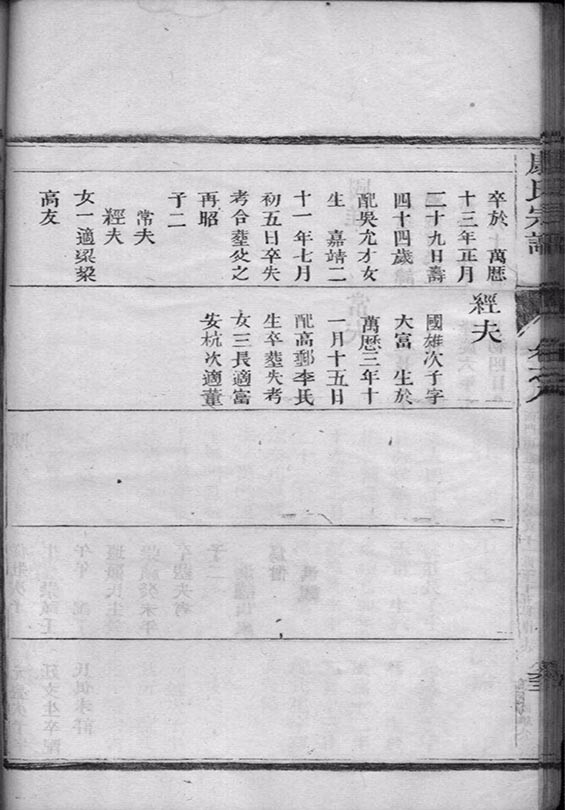 卒於 萬曆
十三年正月
二十九日壽
四十四歲
配吳尤才女
生 嘉靖二
十一年七月
初五日卒失
考合塟父之
再昭
子二
常夫
經夫
女一適梁棃
高友
經夫
國雄次子字
大富 生於
萬曆三年十
一月十五日
配高郵李氏
生卒塟失考
女三長適富
安杭次適董
氏宗譜